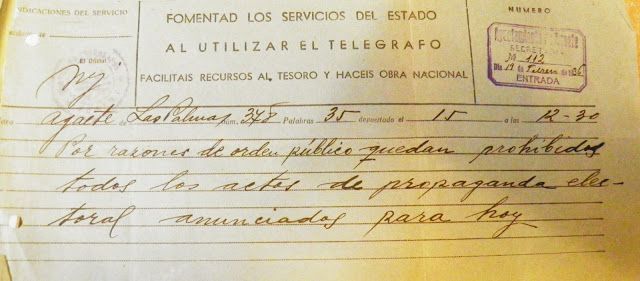 INDICACIONES DEL SERVICIO
FOMENTAD LOS SERVICIOS DEL ESTADO
AL UTILIZAR EL TELEGRAFO
FACILITAIS RECURSOS AL TESORO Y HACEIS OBRA NACIONAL
NUMERO
Ayuntamiento de Agaete
SECRET
Nº 112
Día 19 de Febrero de 1936
ENTRADA
El Oficial
agaete de Las Palmas núm. 348 Palabras 35 depositado el 15 a las 12-30
Por razones de orden público quedan prohibidos
todos los actos de propaganda elec-
toral anunciados para hoy